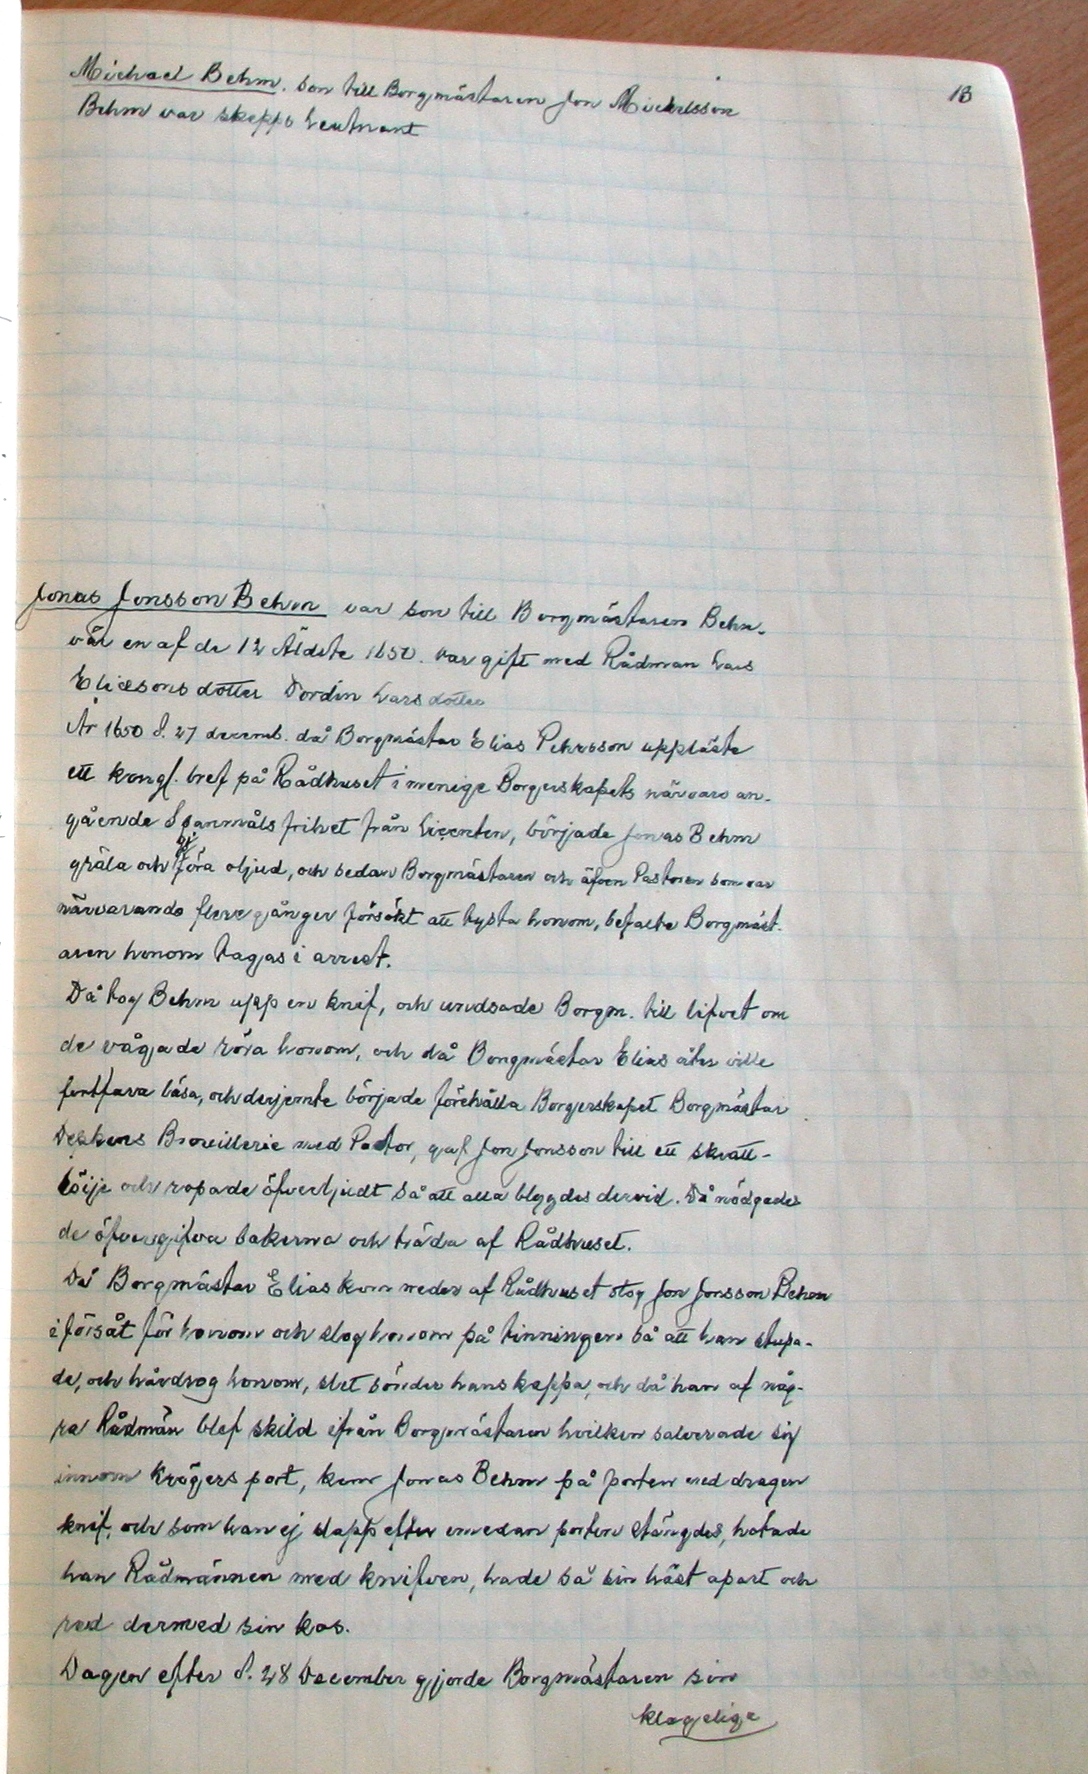 13
Michael Behm. son till Borgmästaren Jon Michelsson
Behm var skepps Leutnant
Jonas Jonsson Behm var son till Borgmästaren Behm.
vår en af de 12 Äldste 1650. var gift med Rådman Lars
Eliæsons dotter Dordin Larsdotter
År 1650 d. 27 decemb. då Borgmästar Elias Pehrsson uppläste
ett kongl. bref på Rådhuset i menige Borgerskapets närvaro an-
gående Spanmåls frihet från Licenten, började Jonas Behm
gräla och göra oljud, och sedan Borgmästaren och äfven Pastoren som var
närvarande flere gånger försökt att tysta honom, befalte Borgmäst-
aren honom tagas i arrest.
Då tog Behm upp en knif, och undsade Borgm. till lifvet om
de vågade röra honom, och då Borgmästar Elias åter ville
fortfara läsa, och derjemte började förehålla Borgerskapet Borgmästar
Brouillerie med Pastor, gaf Jon Jonsson till ett skratt-
löije och ropade öfverljudt så att alla blygdes dervid. Då nödgades
de öfvergifva sakerna och träda af Rådhuset.
Då Borgmästar Elias kom neder af Rådhuset stog Jon Jonsson Behm
i försåt för honom och slog honom på tinningen så att han stupa-
de, och hårdrog honom, slet sönder hans kappa, och då han af någ-
ra Rådmän blef skild ifrån Borgmästaren hvilken salverade sig
innom Krögers port, kom Jonas Behm på porten med dragen
knif, och som han ej slapp efter emedan porten stängdes, hotade
han Rådmännen med knifven, hade så sin häst apart och
red dermed sin kos.
Dagen efter d. 28 December gjorde Borgmästaren sin
klagelige